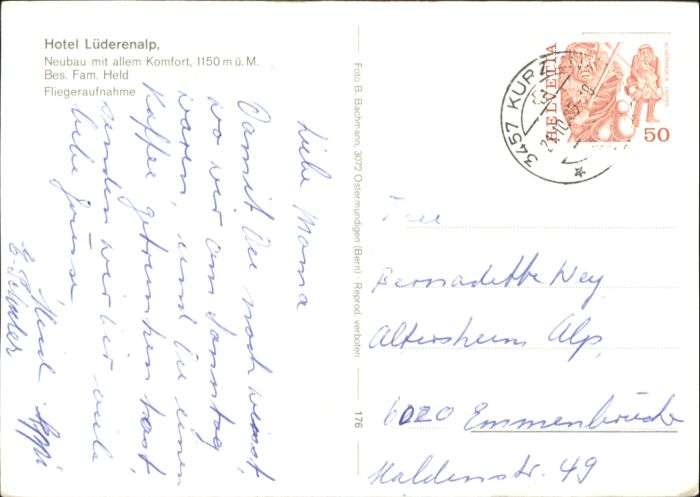 Hotel Lüderenalp,
Neubau mit allem Komfort, 1150 m ü. M.
Bes. Fam. Held
Fliegeraufnahme
Liebe Mama
Damit Du noch weisst,
wo wir am Sonntag
waren, und Du einen
Kaffee getrunken hast,
senden wir Dir viele
liebe Grüsse
Foto B. Bachmann, 3072 Ostermundigen (Bern) Reprod. verboten
176
3457 KURZ
HELVETIA
50
Frau
Bernadette Wey
Altersheim Alp,
6020 Emmenbrücke
Haldenstr. 49